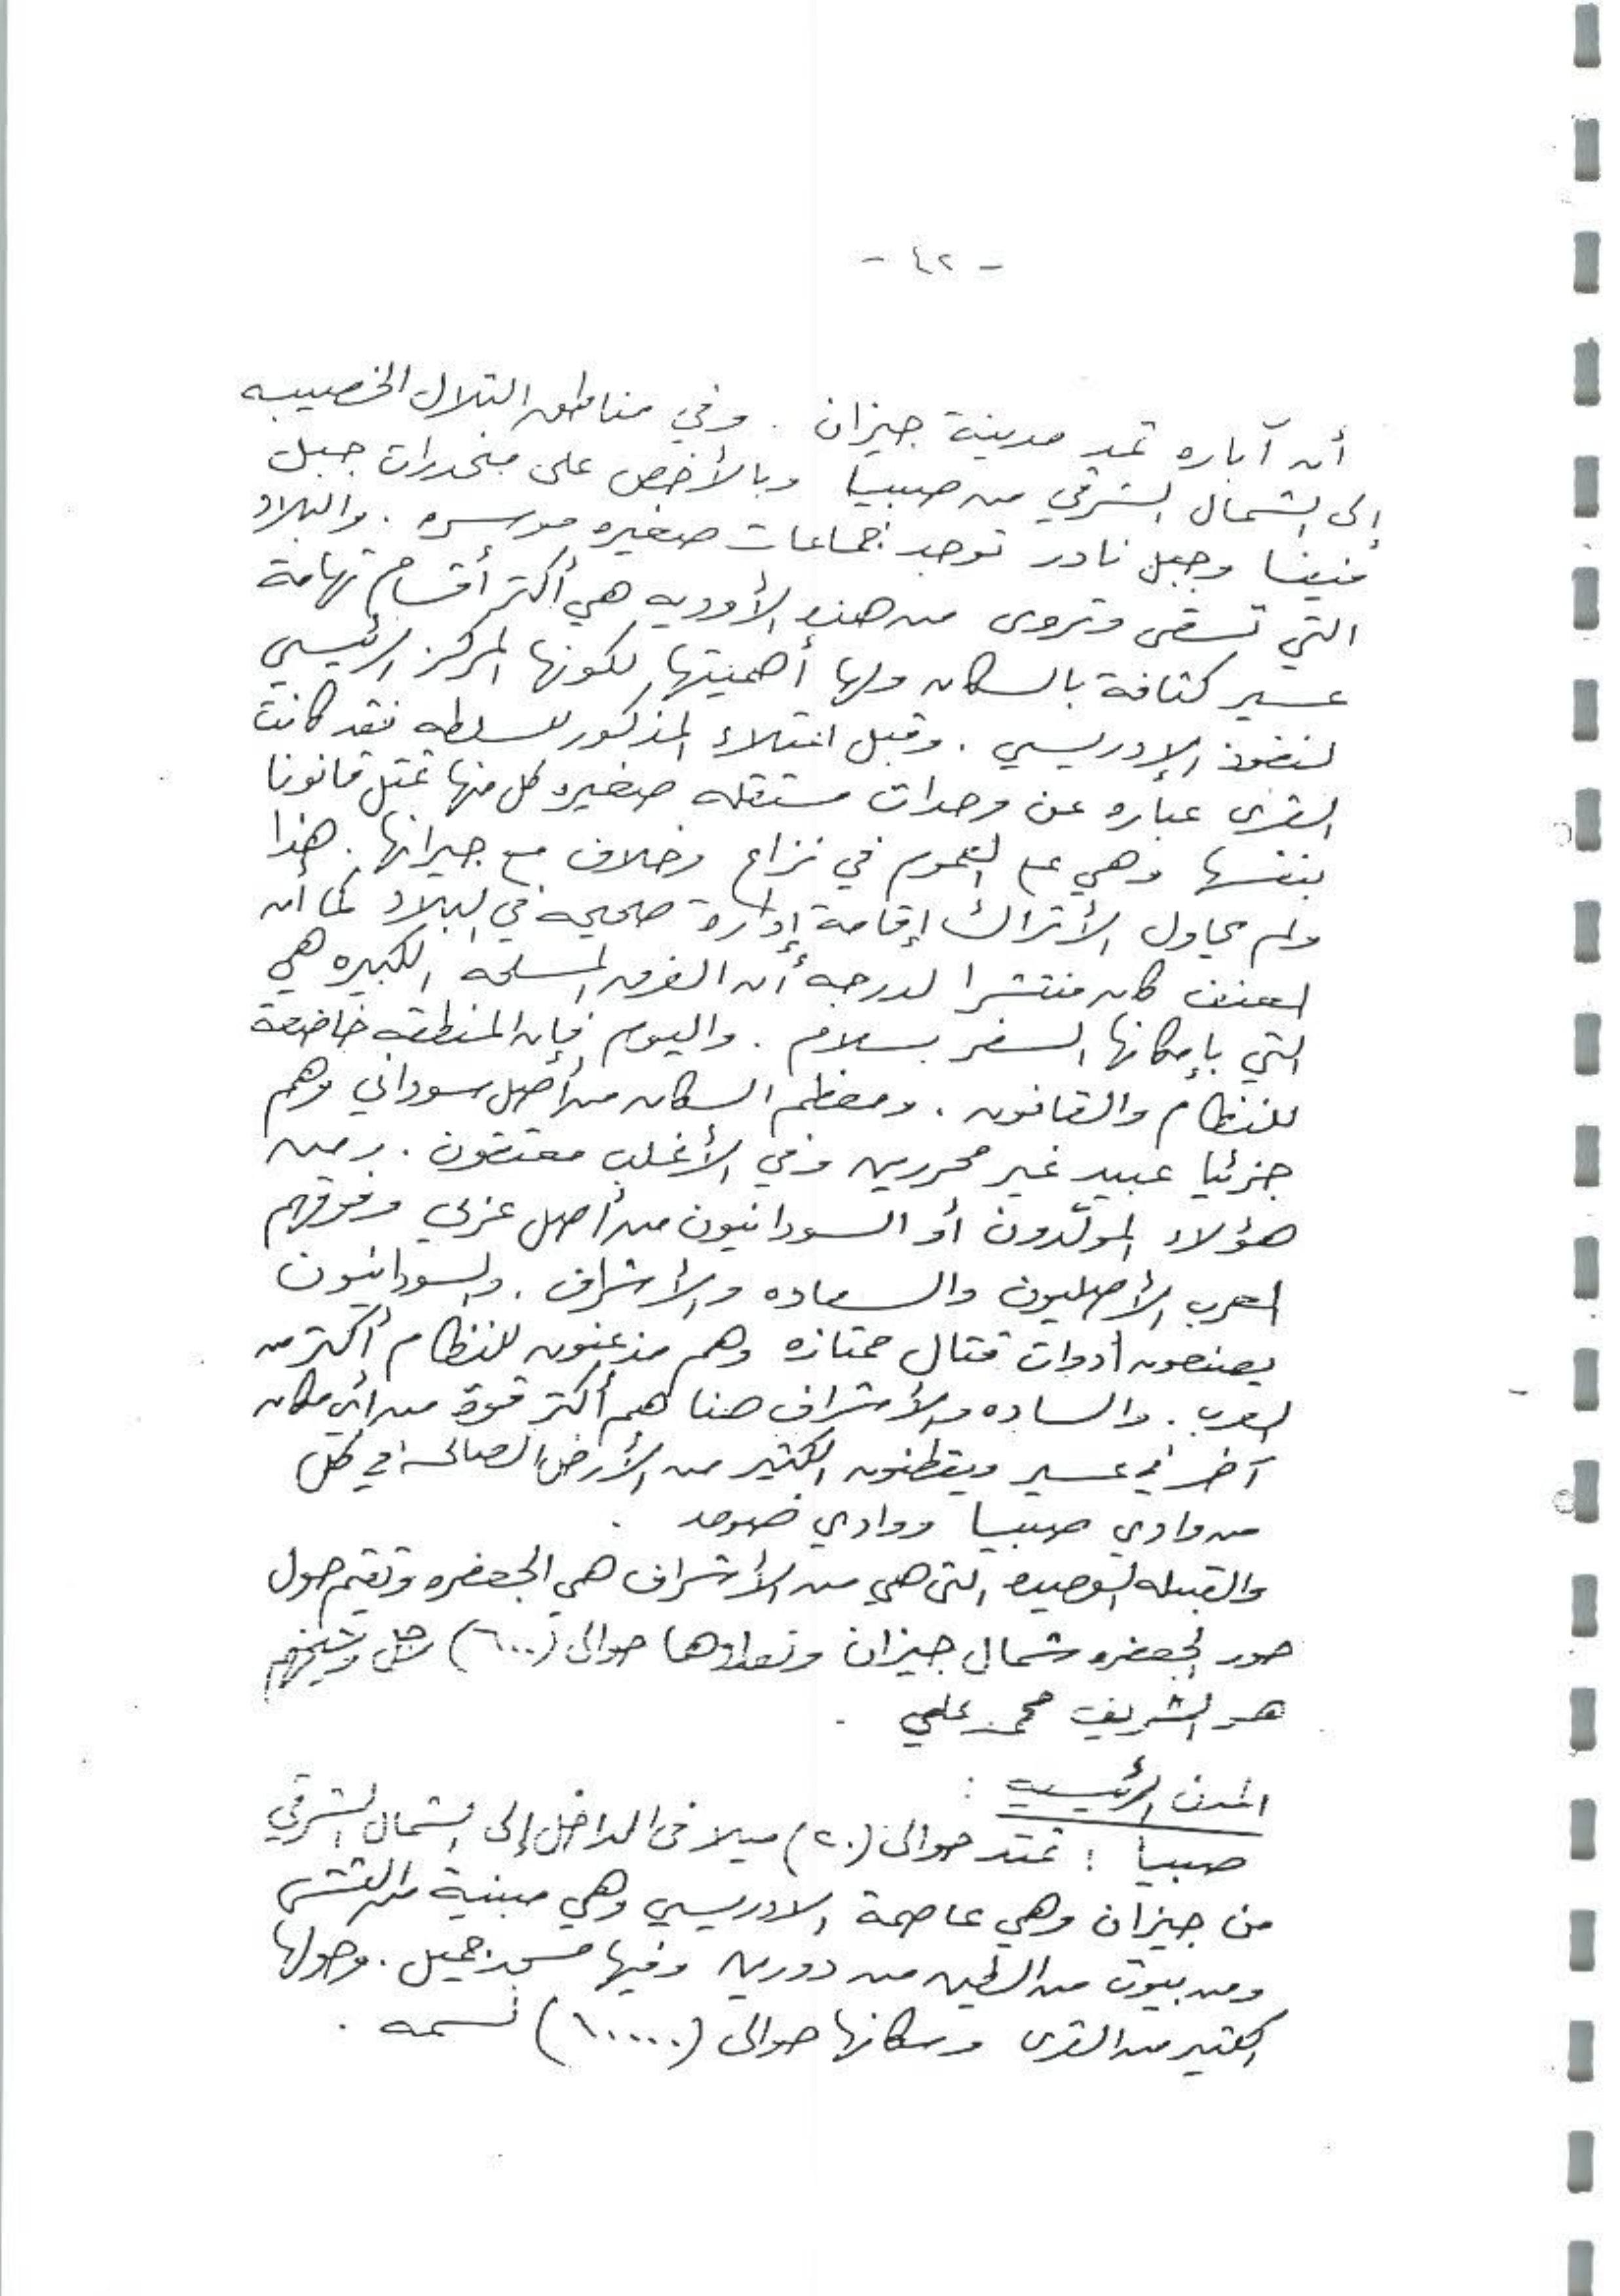 - ٤٢ -
أن آباره تمد مدينة جيزان . وفي مناطق التلال الخصيبه
إلى الشمال الشرقي من صبيا وبالأخص على منحدرات جبل
فيفا وجبل نادر توجد جماعات صغيره موسره . والبلاد
التي تسقى وتروى من هذه الأوديه هي أكثر أقسام تهامة
عسير كثافة بالسكان ولها أهميتها لكونها المركز الرئيسي
لنفوذ الإدريسي . وقبل اعتلاء المذكور للسلطه فقد كانت
القرى عباره عن وحدات مستقله صغيره كل منها تمثل قانونا
بنفسها وهي على العموم في نزاع وخلاف مع جيرانها . هذا
ولم يحاول الأتراك إقامة إدارة صحيحه في البلاد كما أن
العنف كان منتشرا لدرجة أن الفرق المسلحه الكبيره هي
التي بإمكانها السفر بسلام . واليوم فإن المنطقه خاضعة
للنظام والقانون . ومعظم السكان من أصل سوداني وهم
جزئيا عبيد غير محررين وفي الأغلب معتقون . وبين
هؤلاء المولّدون أو السودانيون من أصل عربي وفوقهم
العرب الأصليون والساده والأشراف . والسودانيون
يصنعون أدوات قتال ممتازه وهم مذعنون للنظام أكثر من
العرب . والساده والأشراف هنا هم أكثر قوة من أي مكان
آخر في عسير ويقطنون الكثير من الأرض الصالحة في كل
من وادي صبيا ووادي ضمد .
والقبيله الوحيده التي هي من الأشراف هي الجعفره وتقيم حول
حور الجعفره شمال جيزان وتعدادها حوالى (٦٠٠) رجل وشيخهم
هو الشريف محمد علي .
المدن الرئيسيه :
صبيا : تمتد حوالى (٢٠) ميلا في الداخل إلى الشمال الشرقي
من جيزان وهي عاصمة الادريسي وهي مبنية من القش
ومن بيوت من الطين من دورين وفيها مسجد جميل . وحولها
الكثير من القرى وسكانها حوالى (١٠٠٠٠) نسمه .